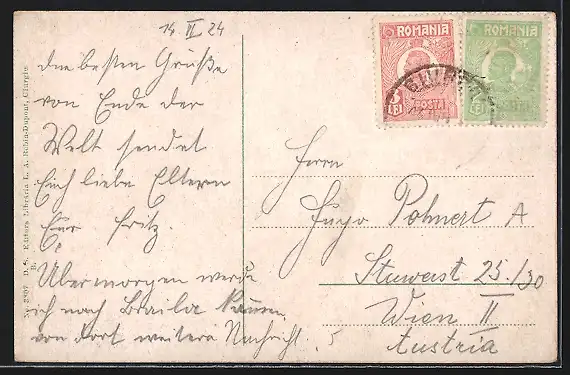 14 VI 24
die besten Grüße
von Ende der
Welt sendet
Euch liebe Eltern
Euer Fritz.
Übermorgen werde
ich nach Braila kommen,
von dort weitere Nachricht.
ROMANIA
3
LEI
POSTA
ROMANIA
2
LEI
POSTA
GIURGIU
Herrn
Hugo Pohnert A
Stuwerst 25/30
Wien II
Austria
Editura Librăria L. A. Rubin-Dupont, Giurgiu